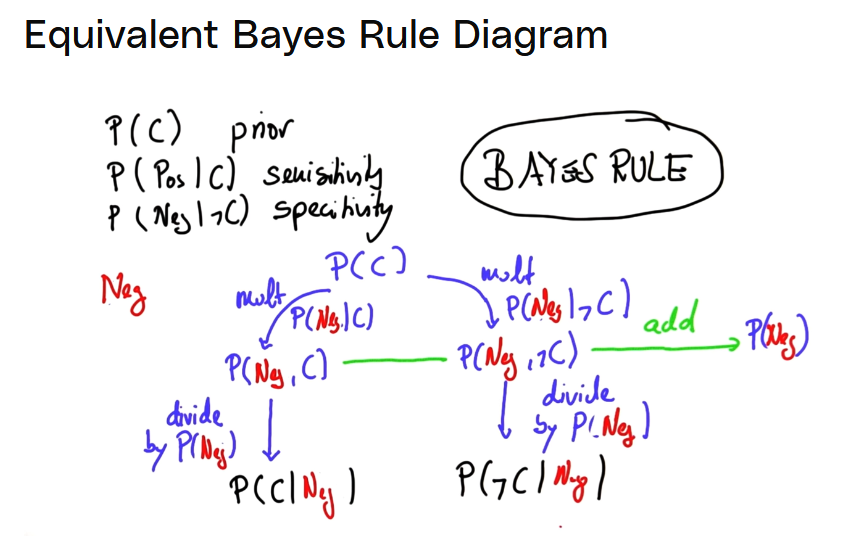 Equivalent Bayes Rule Diagram
P(C) prior
P(Pos|C) sensitivity
P(Neg|¬C) specitivity
BAYES RULE
Neg
P(C)
mult
P(Neg|C)
mult
P(Neg|¬C)
add
P(Neg,C)
P(Neg,¬C)
P(Neg)
divide
by P(Neg)
divide
by P(Neg)
P(C|Neg)
P(¬C|Neg)